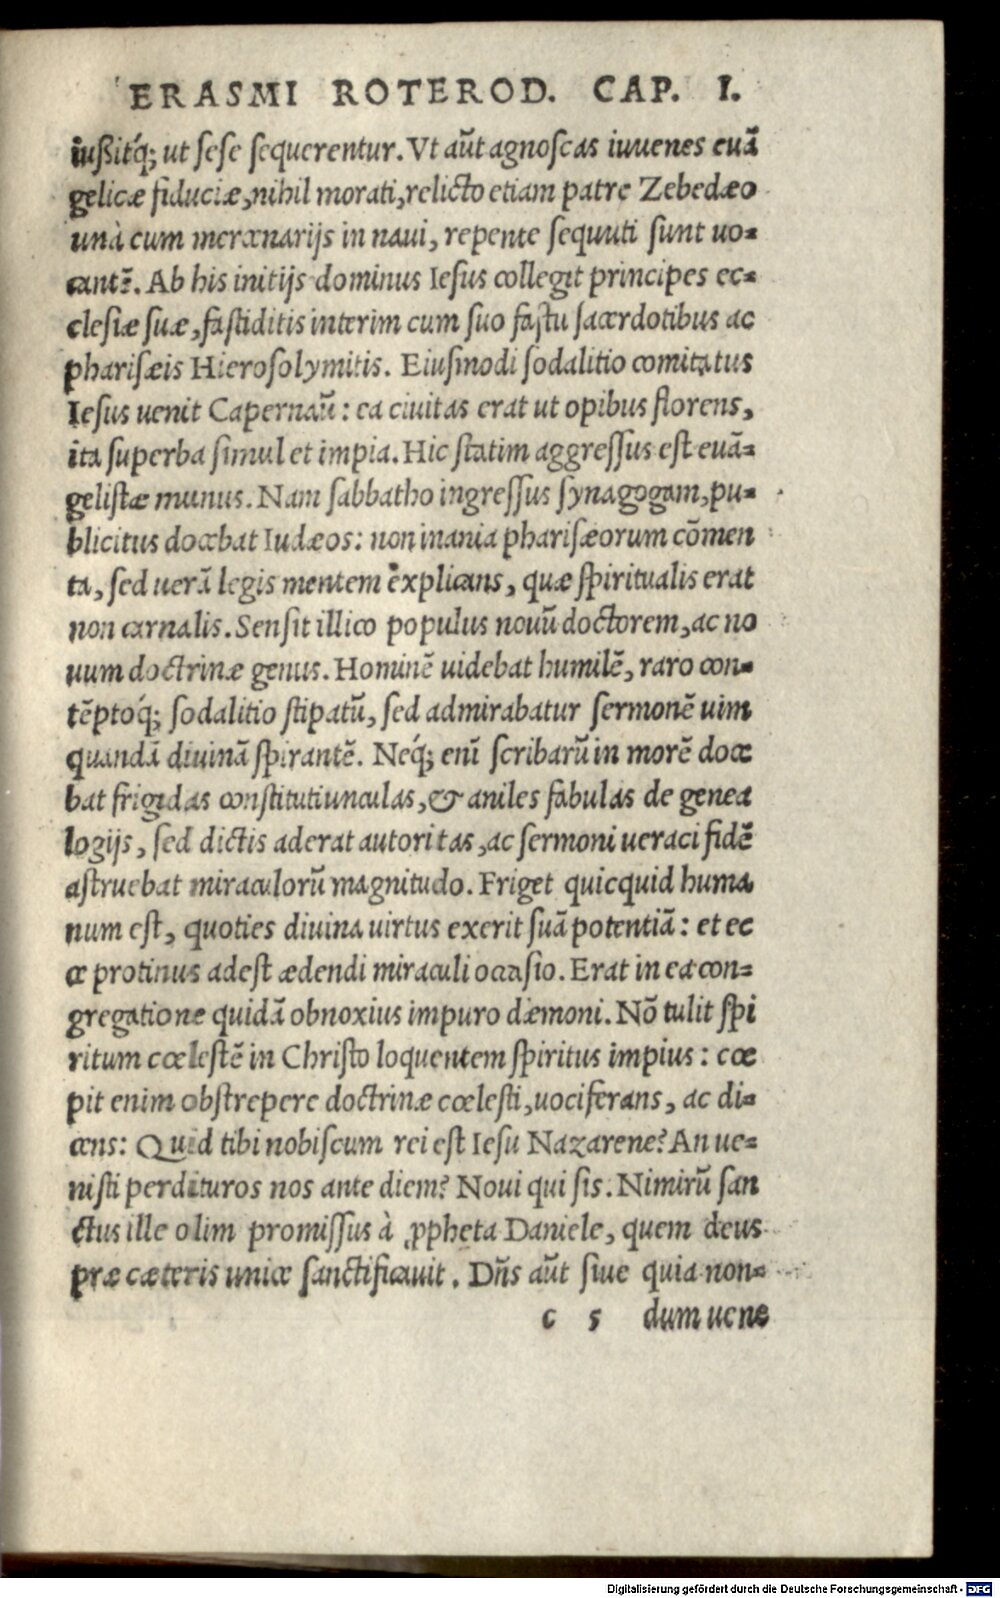 ERASMI ROTEROD. CAP. I.
iußitq́; ut sese sequerentur. Vt aũt agnoscas iuuenes euã
gelicæ fiduciæ, nihil morati, relicto etiam patre Zebedæo
unà cum mercenarijs in naui, repente sequuti sunt uo-
cantẽ. Ab his initijs dominus Iesus collegit principes ec-
clesiæ suæ, fastiditis interim cum suo fastu sacerdotibus ac
pharisæis Hierosolymitis. Eiusmodi sodalitio comitatus
Iesus uenit Capernaũ: ea ciuitas erat ut opibus florens,
ita superba simul et impia. Hic statim aggressus est euã-
gelistæ munus. Nam sabbatho ingressus synagogam, pu-
blicitus docebat Iudæos: non inania pharisæorum cõmen
ta, sed uerã legis mentem explicans, quæ spiritualis erat
non carnalis. Sensit illico populus nouũ doctorem, ac no
uum doctrinæ genus. Hominẽ uidebat humilẽ, raro con-
tẽptoq́; sodalitio stipatũ, sed admirabatur sermonẽ uim
quandã diuinã spirantẽ. Neq́; enĩ scribarũ in morẽ doce
bat frigidas constitutiunculas, & aniles fabulas de genea
logijs, sed dictis aderat autoritas, ac sermoni ueraci fidẽ
astruebat miraculorũ magnitudo. Friget quicquid huma
num est, quoties diuina uirtus exerit suã potentiã: et ec
ce protinus adest ædendi miraculi occasio. Erat in ea con-
gregatione quidã obnoxius impuro dæmoni. Nõ tulit spi
ritum cœlestẽ in Christo loquentem spiritus impius: cœ
pit enim obstrepere doctrinæ cœlesti, uociferans, ac di-
cens: Quid tibi nobiscum rei est Iesu Nazarene? An ue-
nisti perdituros nos ante diem? Noui qui sis. Nimirũ san
ctus ille olim promissus à ꝓpheta Daniele, quem deus
præ cæteris unice sanctificauit. Dñs aũt siue quia non-
c 5 dum uene
Digitalisierung gefördert durch die Deutsche Forschungsgemeinschaft - DFG